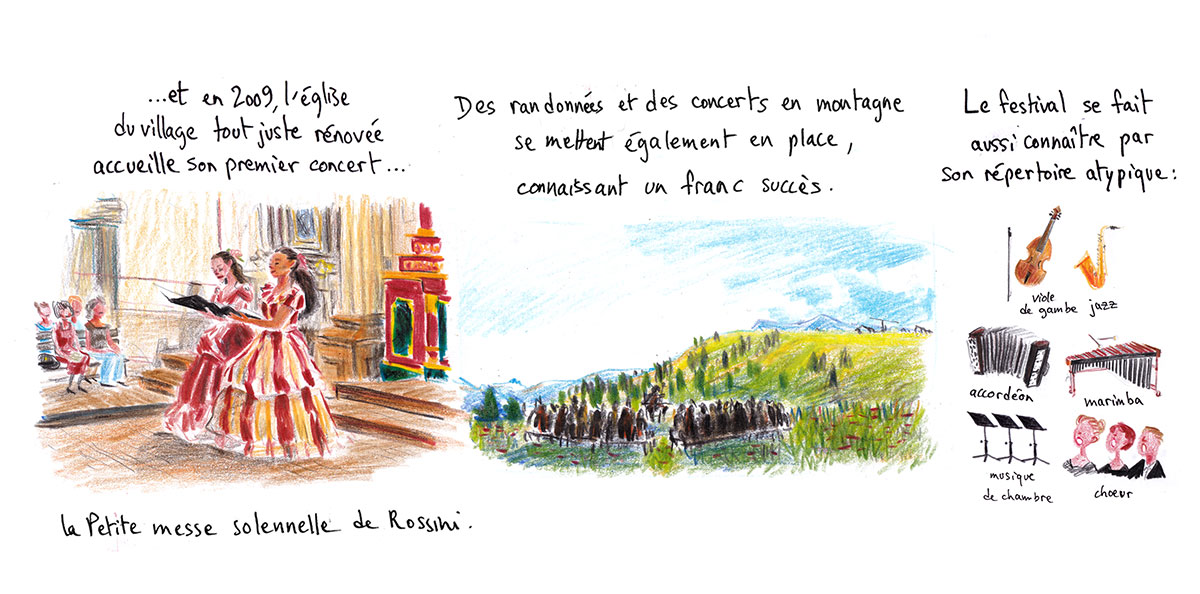 ...et en 2009, l'église
du village tout juste rénovée
accueille son premier concert...
la Petite messe solennelle de Rossini.
Des randonnées et des concerts en montagne
se mettent également en place,
connaissant un franc succès.
Le festival se fait
aussi connaître par
son répertoire atypique:
viole
de gambe
jazz
accordéon
marimba
musique
de chambre
choeur